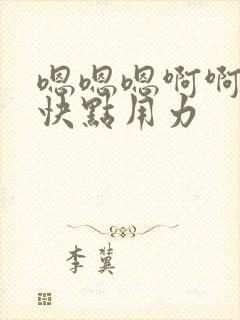 嗯嗯嗯啊啊
快點用力
李冀